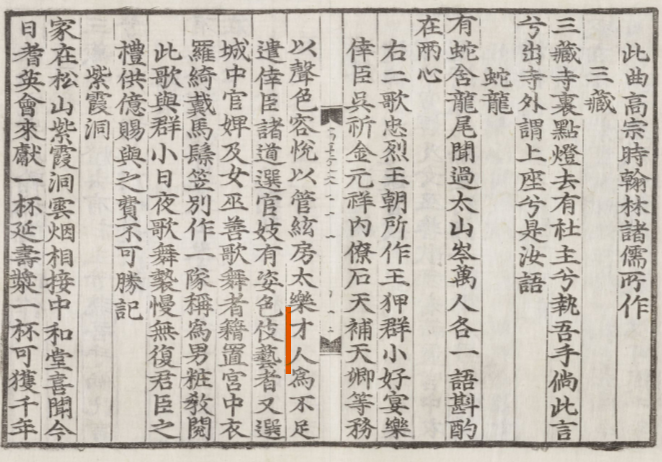 此曲高宗時翰林諸儒所作
三藏
三藏寺裏點燈去有社主兮執吾手倘此言
兮出寺外謂上座兮是汝語
蛇龍
有蛇含龍尾聞過太山岑萬人各一語斟酌
在兩心
右二歌忠烈王朝所作王狎群小好宴樂
倖臣吳祈金元祥內僚石天補天卿等務
以聲色容悅以管絃房太樂才人爲不足
遣倖臣諸道選官妓有姿色伎藝者又選
城中官婢及女巫善歌舞者籍置宮中衣
羅綺戴馬鬃笠別作一隊稱爲男粧敎閱
此歌與群小日夜歌舞褻慢無復君臣之
禮供億賜與之費不可勝記
紫霞洞
家在松山紫霞洞雲烟相接中和堂喜聞今
日耆英會來獻一杯延壽漿一杯可獲千年